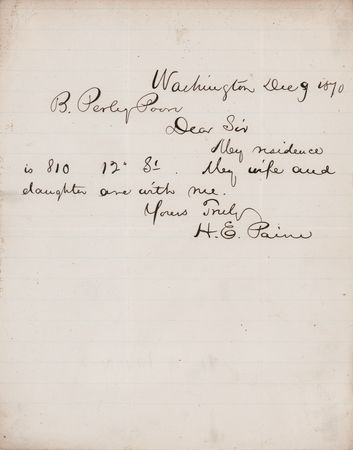 Washington Dec 9 1870
B. Perley Poore
Dear Sir
My residence
is 810 12th St. My wife and
daughter are with me.
Yours Truly
H. E. Paine